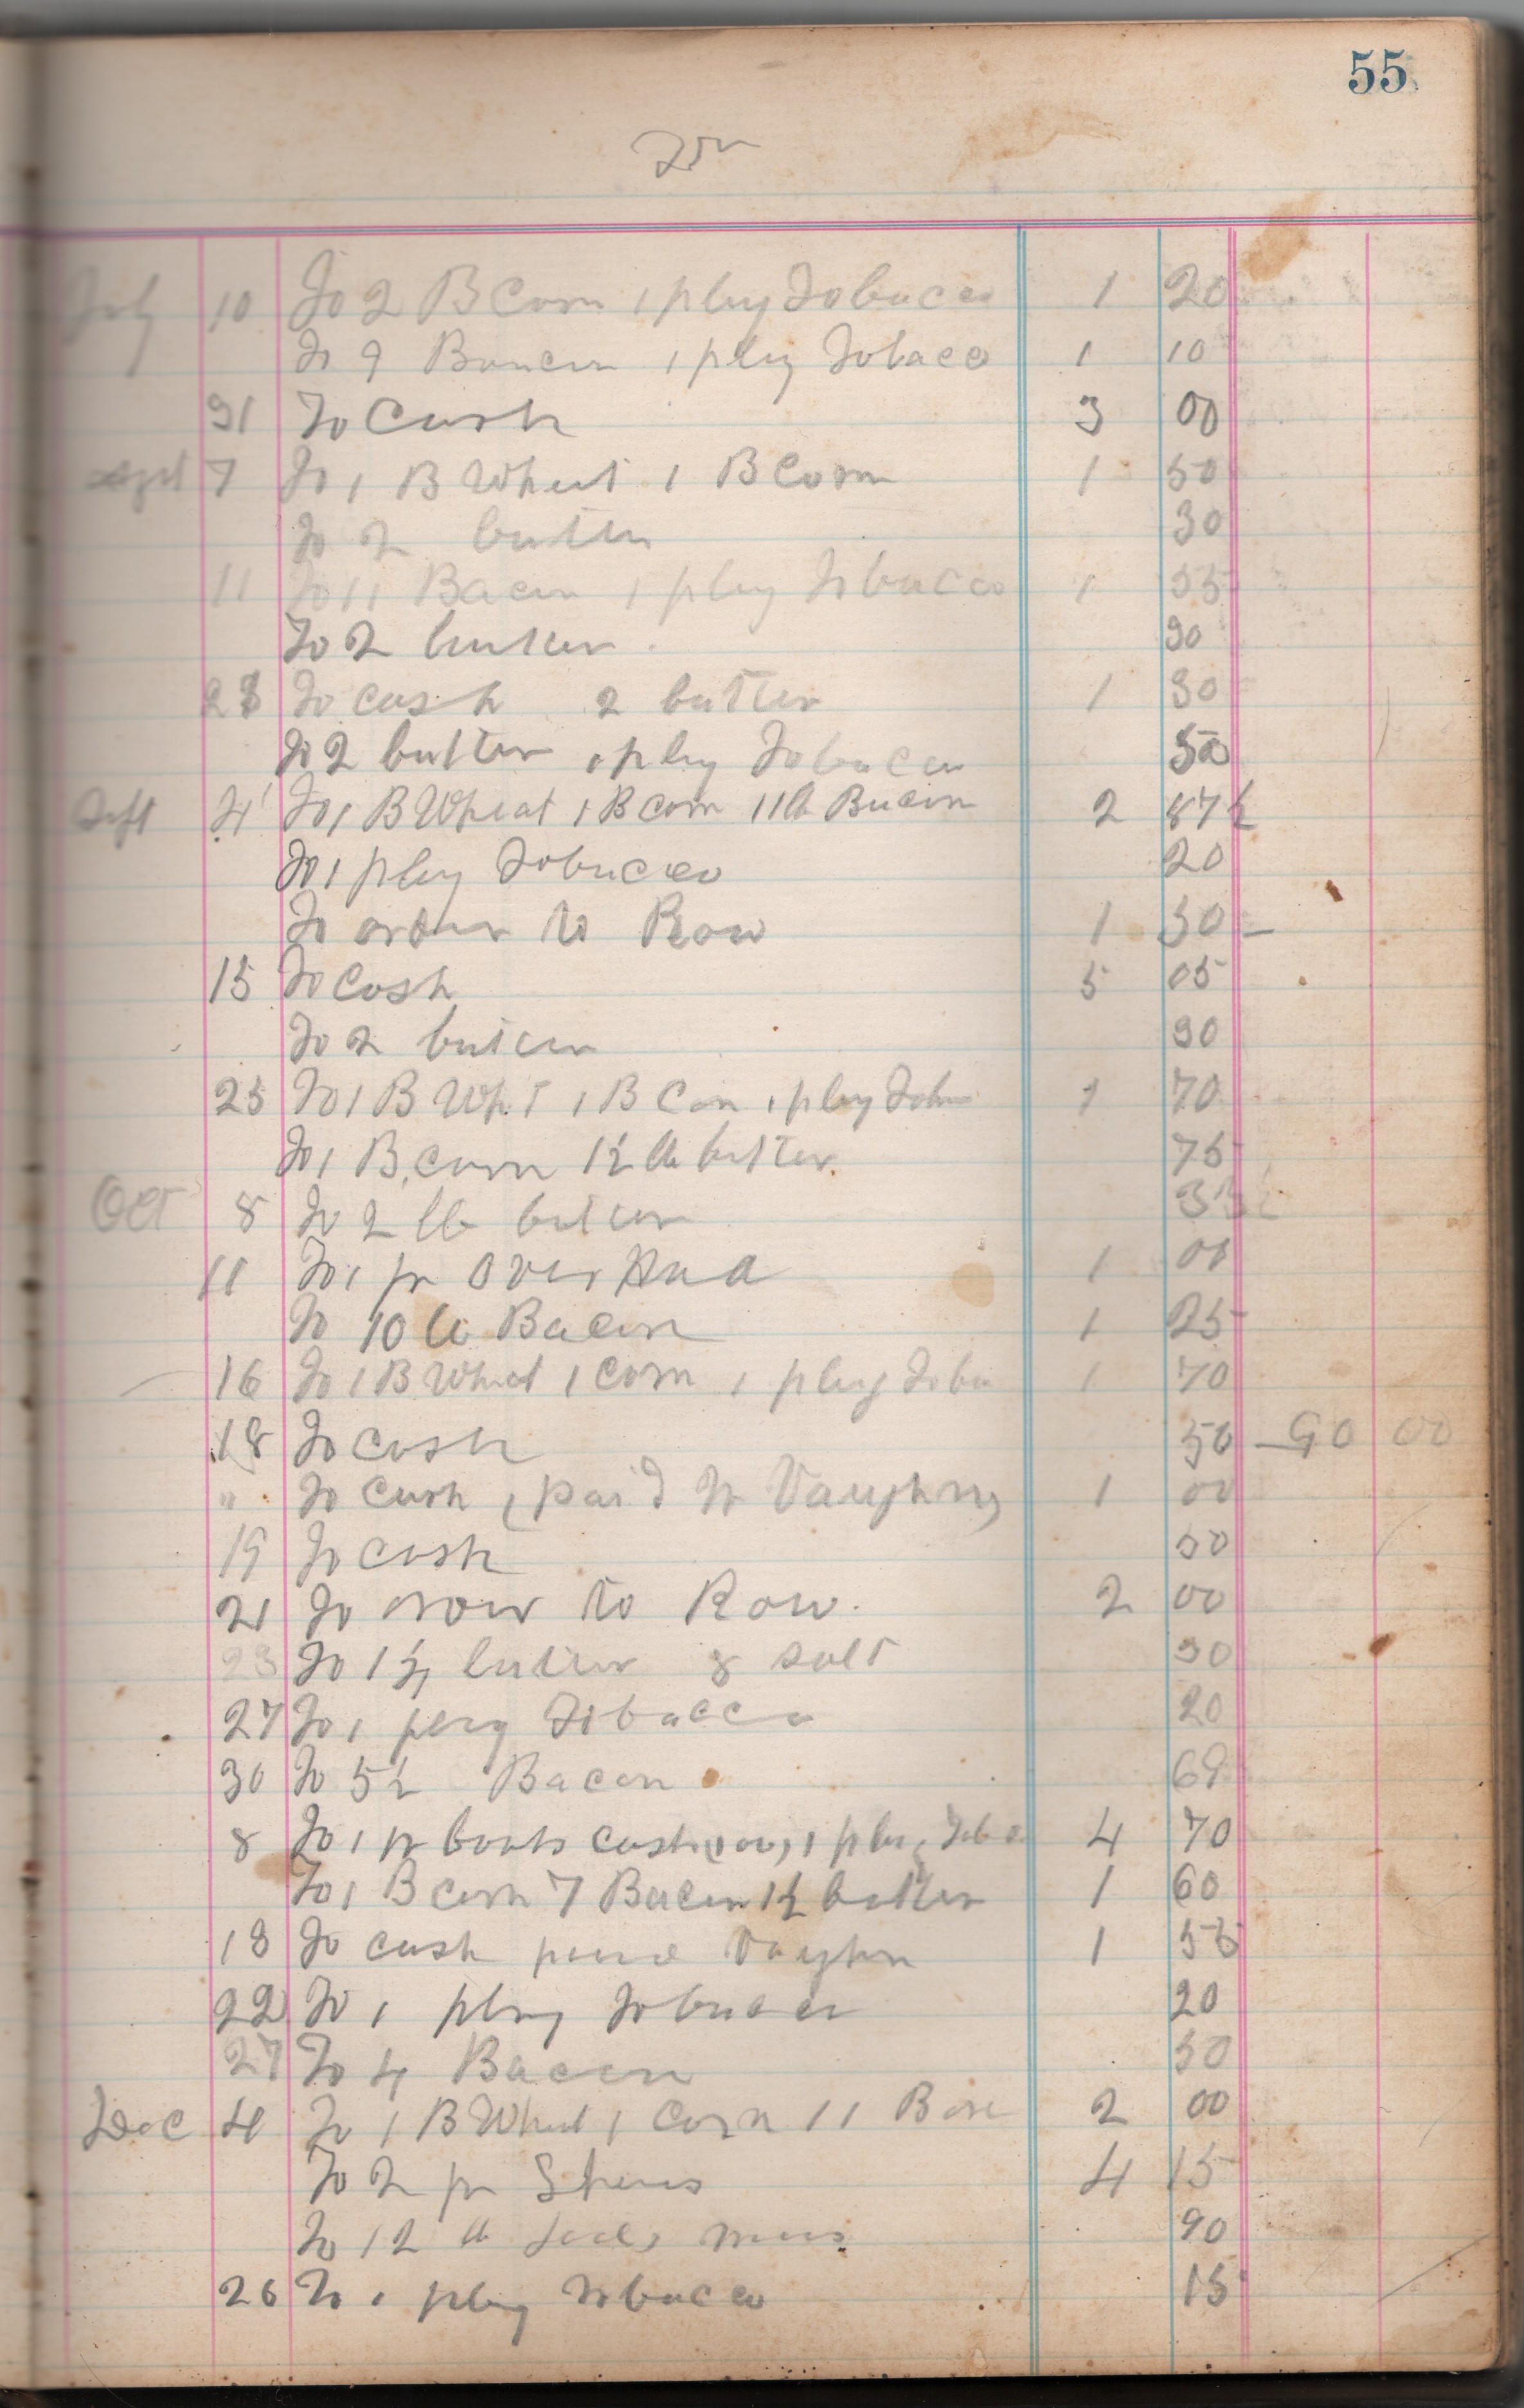 55
July 10 To 2 B Corn 1 plug Tobacco 1 20
To 9 Bancon 1 plug Tobaco 1 10
31 To Cash 3 00
7 To 1 B Wheat 1 B Corn 1 50
To 2 butter 30
11 To 11 Bacon 1 plug Tobacco 1 55
To 2 butter 30
28 To cash 2 butter 1 30
To 2 butter 1 plug Tobacco 50
Sept 4 To 1 B Wheat 1 B Corn 11 lb Bacon 2 87½
To 1 plug Tobacco 20
To order to Row 1 50
15 To Cash 5 05
To 2 butter 30
25 To 1 B Wht 1 B Con 1 plug Toba 1 70
To 1 B corn 1½ lb butter 75
Oct 8 To 2 lb butter
11 To 1 pr Over 1 00
To 10 lb Bacon 1 25
16 To 1 B Wheat 1 Corn 1 plug Toba 1 70
18 To Cash 50 00
" To Cash (paid to Vaughn) 1 00
19 To Cash 50
21 To to Row. 2 00
23 To 1½ butter & salt 30
27 To 1 plug Tobacco 20
30 To 5½ Bacon 69
8 To 1 pr boots cash 1 plug Toba 4 70
To 1 B corn 7 Bacon 1½ butter 1 60
18 To cash paid Vaughn 1 55
22 To 1 plug Tobacco 20
27 To 4 Bacon 50
Dec 4 To 1 B Wheat 1 Corn 11 2 00
To 2 pr Shoes 4 15
To 12 lb 90
26 To 1 plug Tobacco 15